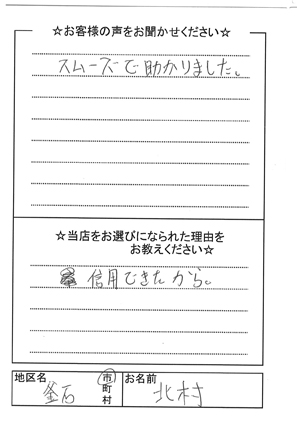 ☆お客様の声をお聞かせください☆
スムーズで助かりました。
☆当店をお選びになられた理由を
お教えください☆
信用できたから。
地区名
釜石
市
町
村
お名前
北村